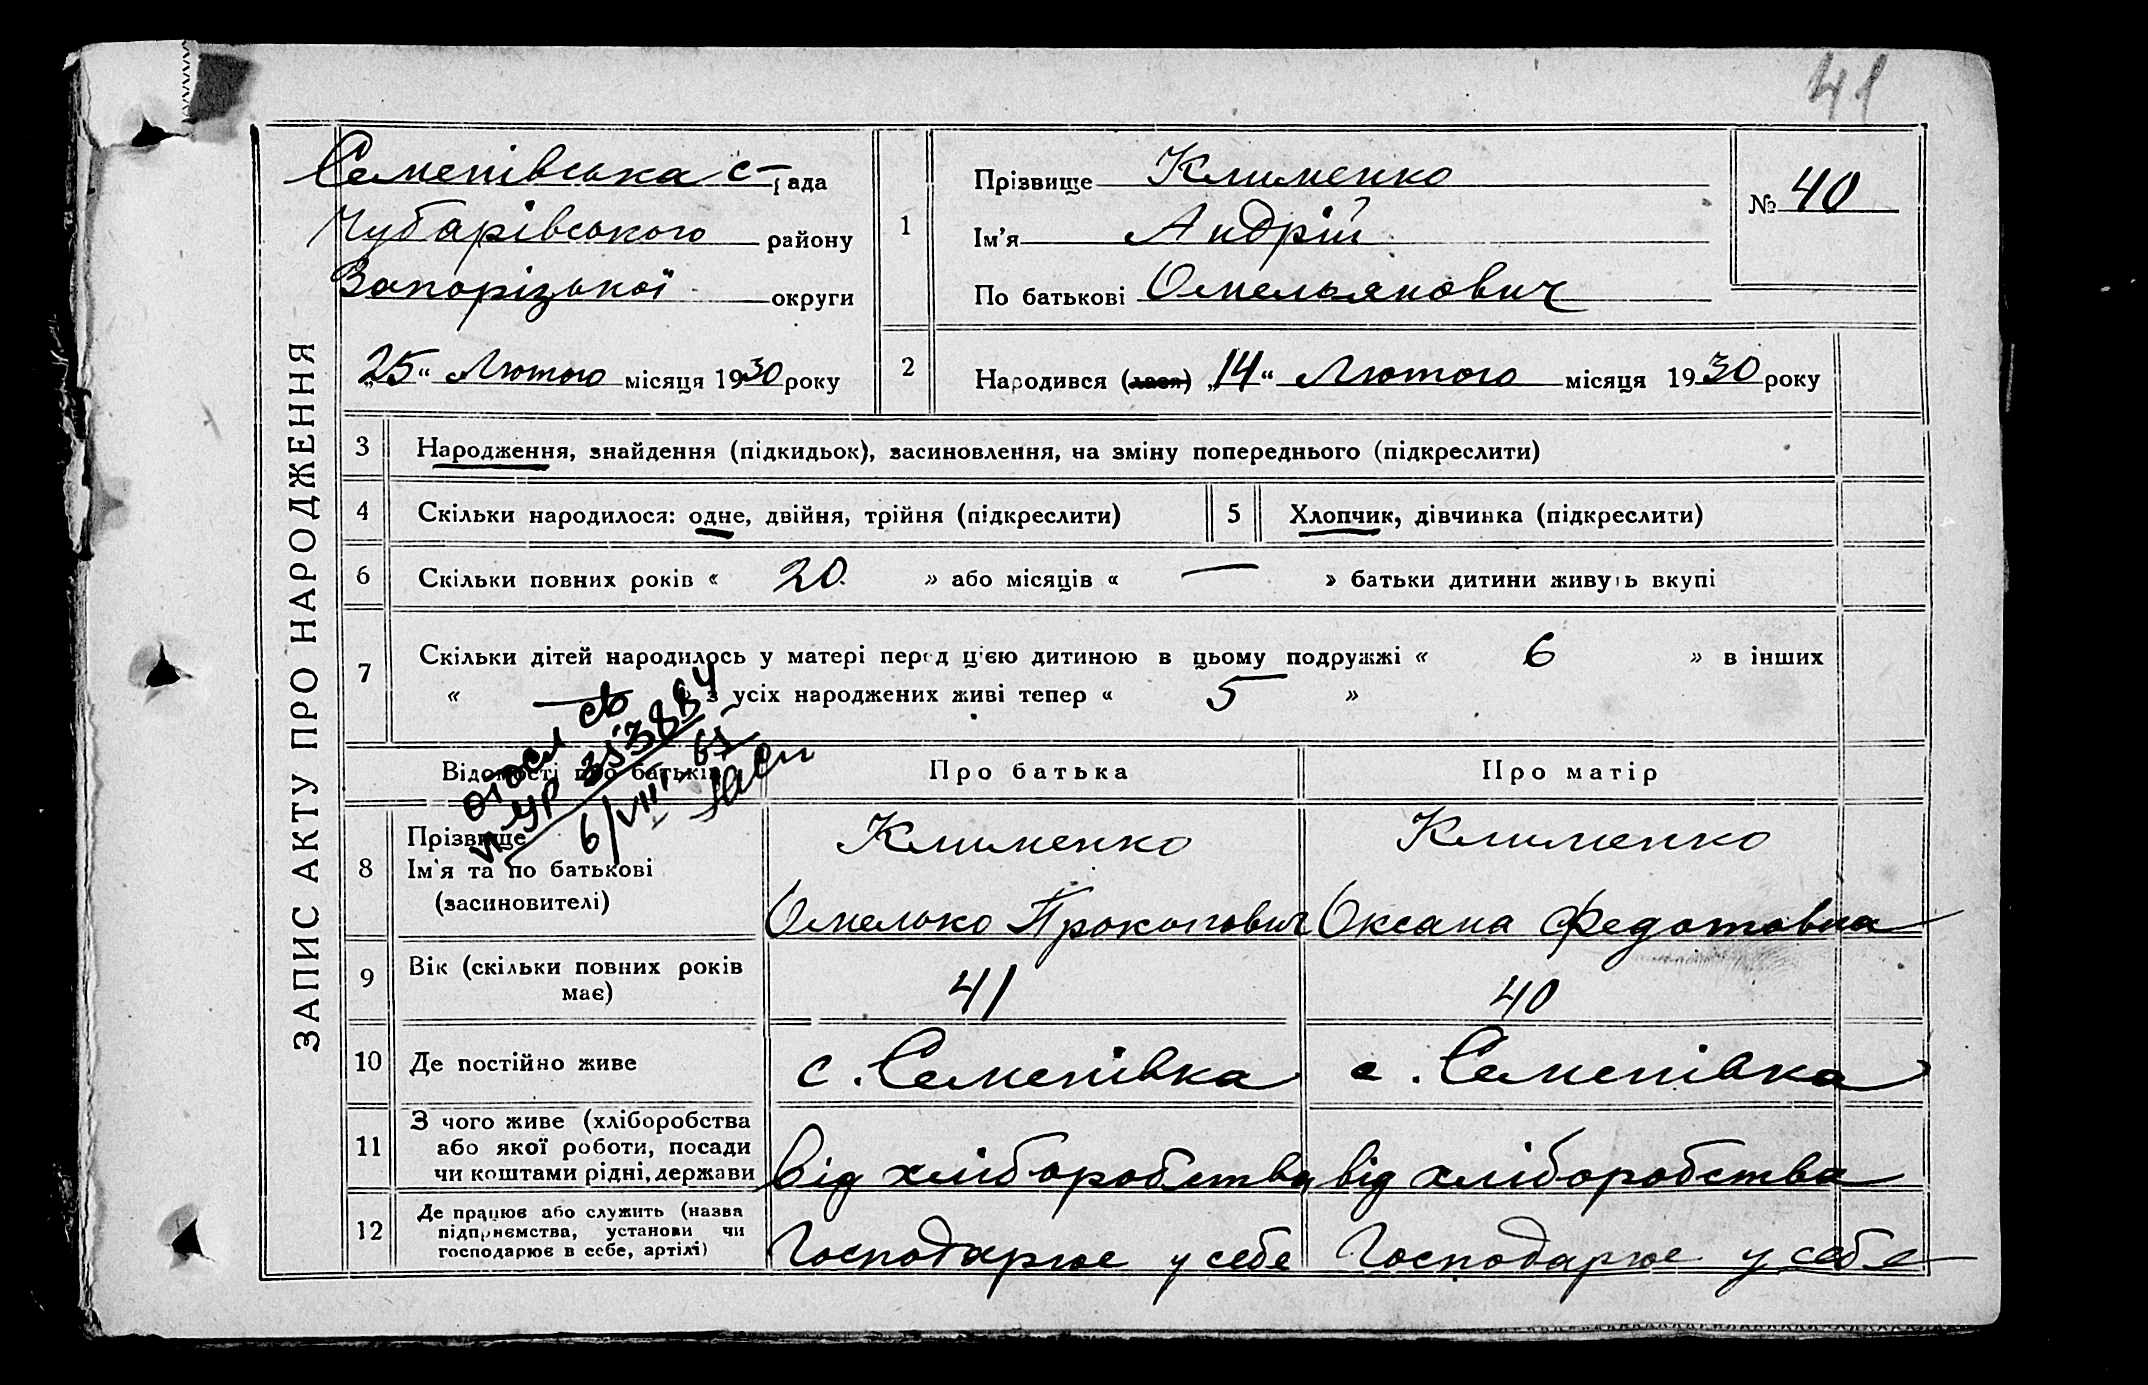 41
ЗАПИС АКТУ ПРО НАРОДЖЕННЯ
Семенівська с-рада
Чубарівського району
Запорізької округи
„25“ Лютого місяця 1930 року
1
Прізвище Клименко
Ім'я Андрій
По батькові Омельянович
№ 40
2 Народився (лася) „14“ Лютого місяця 1930 року
3 Народження, знайдення (підкидьок), засиновлення, на зміну попереднього (підкреслити)
4 Скільки народилося: одне, двійня, трійня (підкреслити) 5 Хлопчик, дівчинка (підкреслити)
6 Скільки повних років « 20 » або місяців « — » батьки дитини живуть вкупі
7 Скільки дітей народилось у матері перед цією дитиною в цьому подружжі « 6 » в інших
« — » з усіх народжених живі тепер « 5 »
6/VIII
Відомості про батьків Про батька Про матір
8 Прізвище
Ім'я та по батькові
(засиновителі)
Клименко
Омелько Прокопович
Клименко
Оксана Федотовна
9 Вік (скільки повних років
має) 41 40
10 Де постійно живе с. Семенівка с. Семенівка
11 З чого живе (хліборобства
або якої роботи, посади
чи коштами рідні, держави
від хліборобства від хліборобства
12 Де працює або служить (назва
підприємства, установи чи
господарює в себе, артілі)
Господарює у себе Господарює у себе